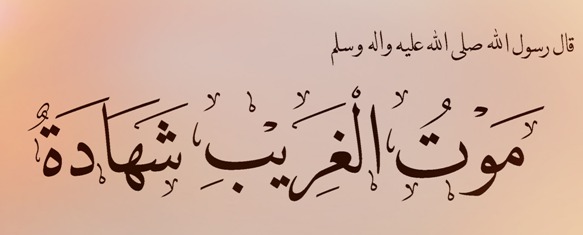 قال رسول الله صلى الله عليه وآله وسلم
مَوْتُ الْغَرِيْبِ شَهَادَةٌ